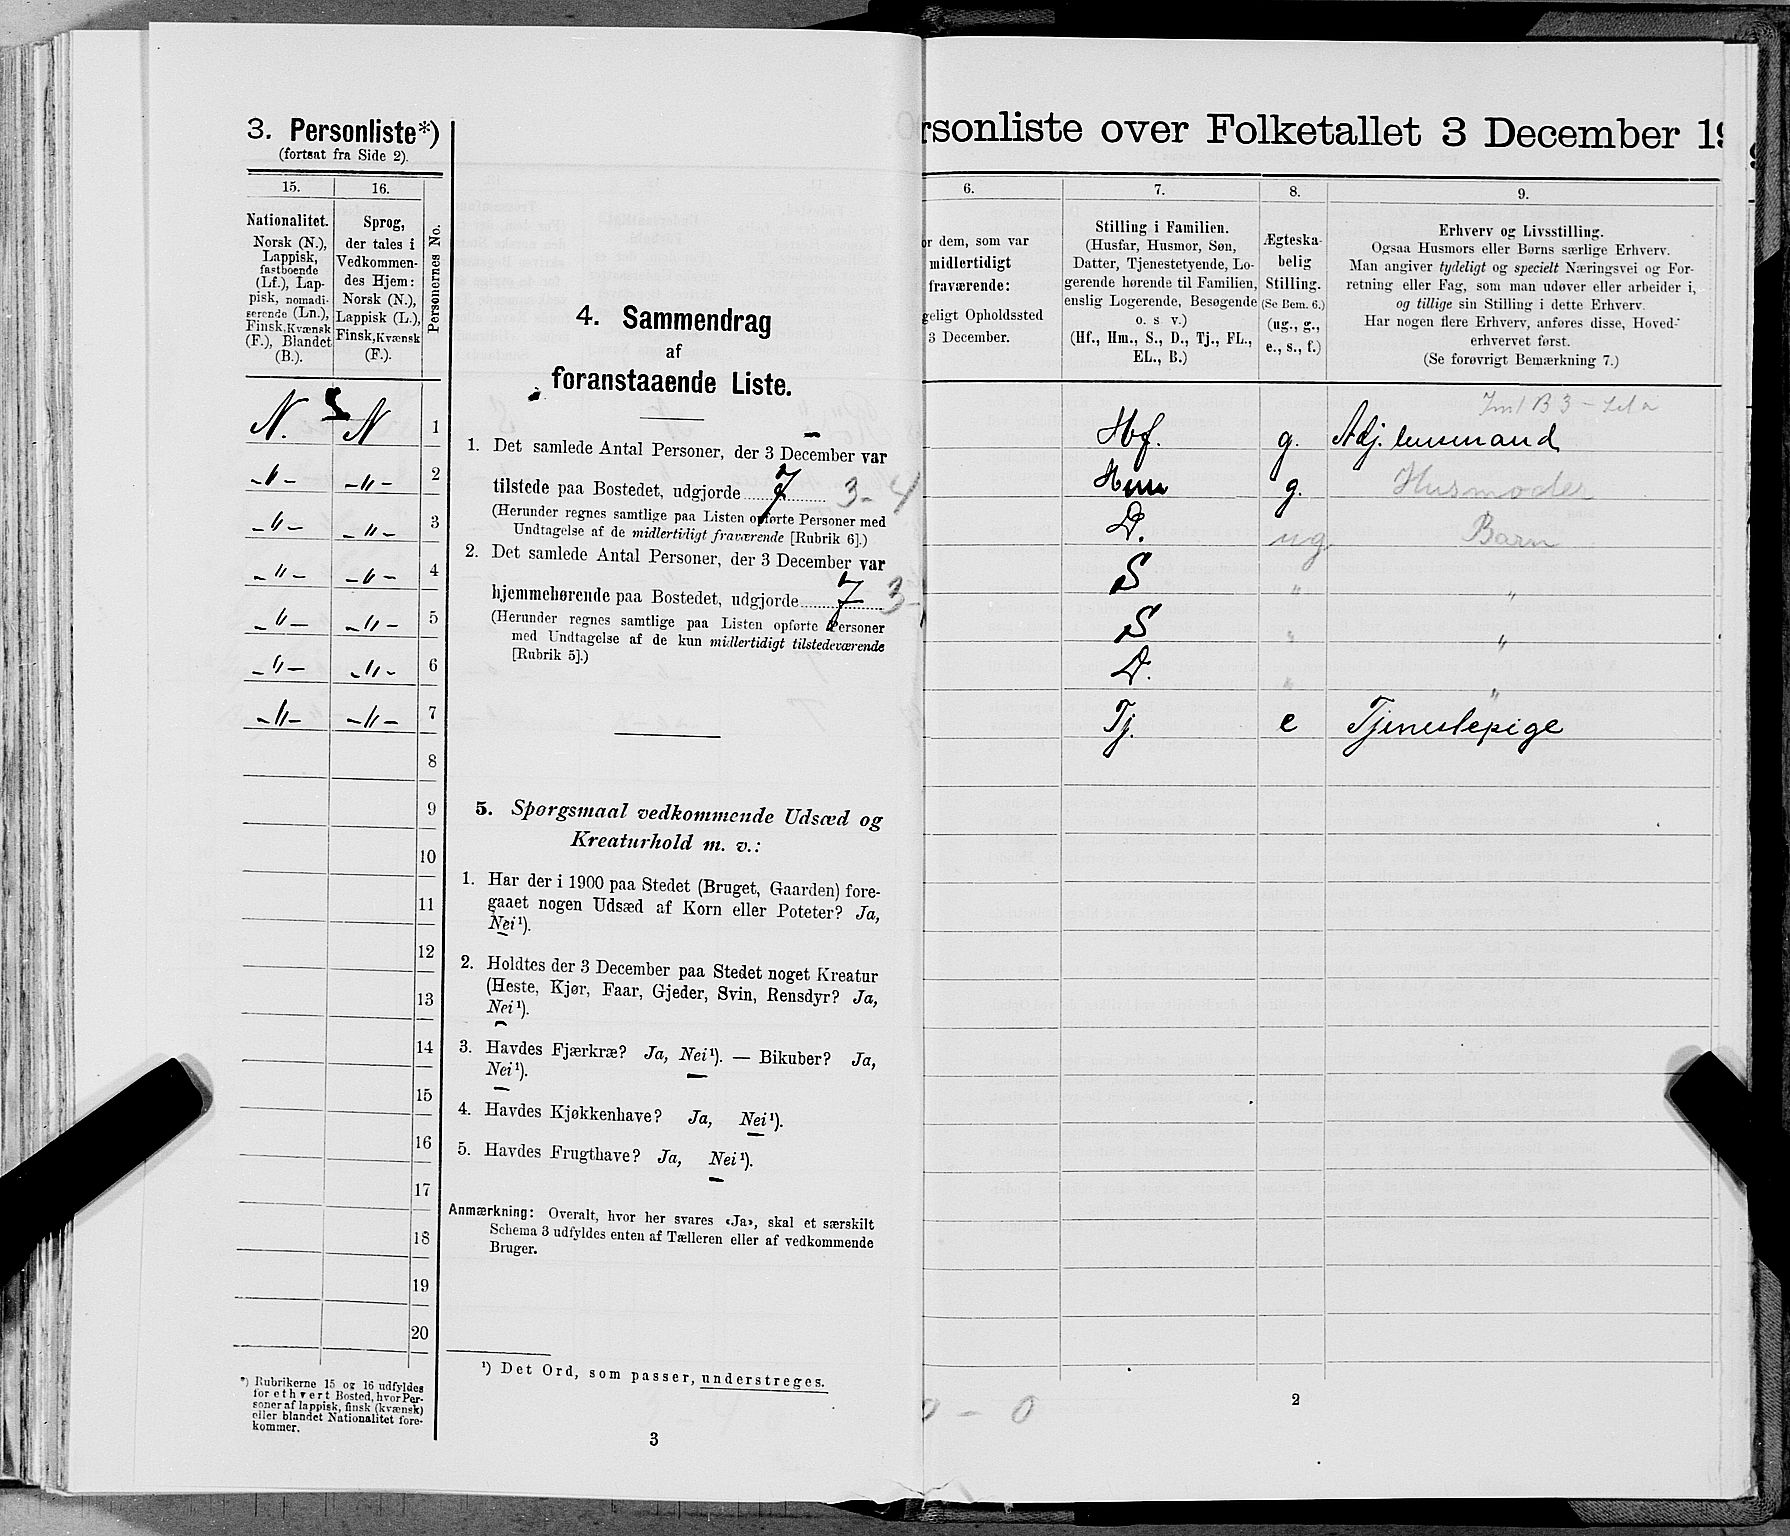 3. Personliste*)
(fortsat fra Side 2).
15.
16.
Personernes No.
Nationalitet.
Norsk (N.),
Lappisk,
fastboende
(Lf.), Lap-
pisk, nomadi-
serende (Ln.),
Finsk, Kvænsk
(F.), Blandet
(B.).
Sprog,
der tales i
Vedkommen-
des Hjem:
Norsk (N.),
Lappisk (L.),
Finsk, Kvænsk
(F.).
N. N 1
-"- -"- 2
-"- -"- 3
-"- -"- 4
-"- -"- 5
-"- -"- 6
-"- -"- 7
8
9
10
11
12
13
14
15
16
17
18
19
20
*) Rubrikerne 15 og 16 udfyldes
for ethvert Bosted, hvor Per-
soner af lappisk, finsk (kvænsk)
eller blandet Nationalitet fore-
kommer.
4. Sammendrag
af
foranstaaende Liste.
1. Det samlede Antal Personer, der 3 December var
tilstede paa Bostedet, udgjorde 7 3-4
(Herunder regnes samtlige paa Listen opførte Personer med
Undtagelse af de midlertidigt fraværende [Rubrik 6].)
2. Det samlede Antal Personer, der 3 December var
hjemmehørende paa Bostedet, udgjorde 7 3-
(Herunder regnes samtlige paa Listen opførte Personer
med Undtagelse af de kun midlertidigt tilstedeværende
[Rubrik 5].)
5. Spørgsmaal vedkommende Udsæd og
Kreaturhold m. v.:
1. Har der i 1900 paa Stedet (Bruget, Gaarden) fore-
gaaet nogen Udsæd af Korn eller Poteter? Ja,
Nei¹).
2. Holdtes der 3 December paa Stedet noget Kreatur
(Heste, Kjør, Faar, Gjeder, Svin, Rensdyr? Ja,
Nei¹).
3. Havdes Fjærkræ? Ja, Nei¹). — Bikuber? Ja,
Nei¹).
4. Havdes Kjøkkenhave? Ja, Nei¹).
5. Havdes Frugthave? Ja, Nei¹).
Anmærkning: Overalt, hvor her svares «Ja», skal et særskilt
Schema 3 udfyldes enten af Tælleren eller af vedkommende
Bruger.
¹) Det Ord, som passer, understreges.
3
rsonliste over Folketallet 3 December 19
6.
7.
8.
9.
or dem, som var
midlertidigt
fraværende:
geligt Opholdssted
3 December.
Stilling i Familien.
(Husfar, Husmor, Søn,
Datter, Tjenestetyende, Lo-
gerende hørende til Familien,
enslig Logerende, Besøgende
o. s. v.)
(Hf., Hm., S., D., Tj., FL.,
EL., B.)
Ægteska-
belig
Stilling.
(Se Bem. 6.)
(ug., g.,
e., s., f.)
Erhverv og Livsstilling.
Ogsaa Husmors eller Børns særlige Erhverv.
Man angiver tydeligt og specielt Næringsvei og For-
retning eller Fag, som man udøver eller arbeider i,
og tillige sin Stilling i dette Erhverv.
Har nogen flere Erhverv, anføres disse, Hoved-
erhvervet først.
(Se forøvrigt Bemærkning 7.)
B 3 -
Hf. g. Adj. lensmand
Hm g. Husmoder
D. ug. Barn
S " "
S " "
D. " "
Tj. e Tjenestepige
0 - 0
2